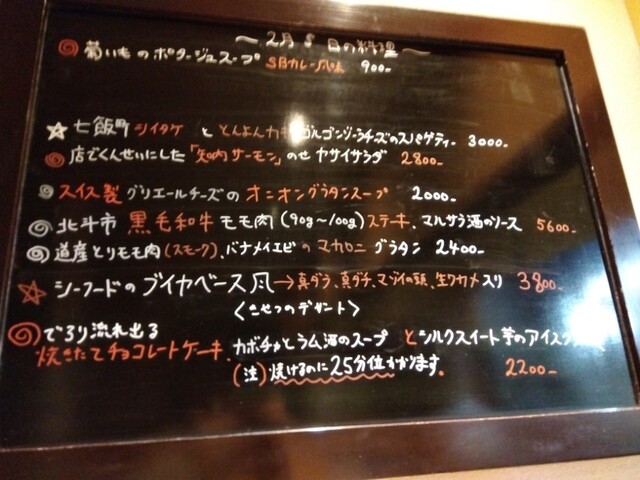 〜2月8日の料理〜
菊いものポタージュスープ SBカレー風味 900-
七飯町シイタケととんよんカキ ゴルゴンゾーラチーズのスパゲティー 3000-
店でくんせいにした「知内サーモン」のせヤサイサラダ 2800-
スイス製グリエールチーズのオニオングラタンスープ 2000-
北斗市 黒毛和牛モモ肉(90g〜100g)ステーキ、マルサラ酒のソース 5600-
道産とりモモ肉(スモーク)、バナメイエビのマカロニグラタン 2400-
シーフードのブイヤベース風→真ダラ、真ダチ、マゾイの頭、生ワカメ入り 3800-
〈きせつのデザート〉
でろり流れ出る
焼きたてチョコレートケーキ、カボチャとラム酒のスープ とシルクスイート芋のアイス
(注)焼けるのに25分位かかります。 2200-